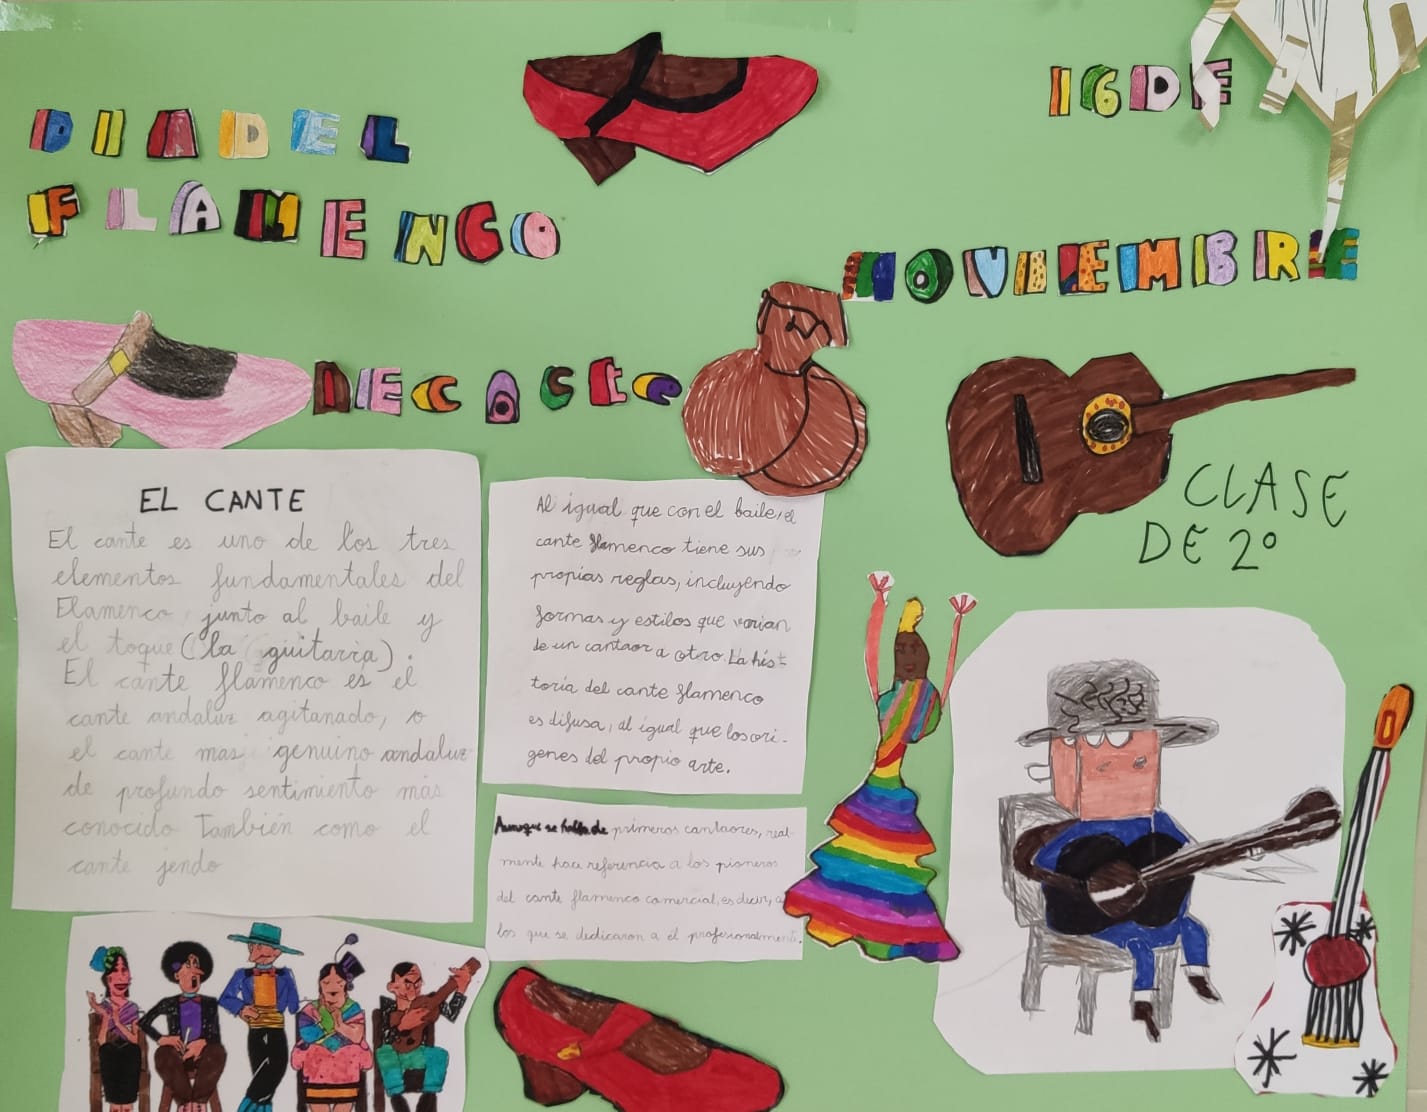 DIA DEL
FLAMENCO
16 DE
NOVIEMBRE
CLASE
DE 2º
EL CANTE
El cante es uno de los tres
elementos fundamentales del
Flamenco, junto al baile y
el toque (la guitarra).
El cante flamenco es el
cante andaluz agitanado, o
el cante mas genuino andaluz
de profundo sentimiento más
conocido También como el
cante jendo
Al igual que con el baile, el
cante flamenco tiene sus
propias reglas, incluyendo
formas y estilos que varian
de un cantaor a otro. La his-
toria del cante flamenco
es difusa, al igual que los orí-
genes del propio arte.
Aunque se habla de primeros cantaores, real-
mente hace referencia a los pioneros
del cante flamenco comercial, es decir, a
los que se dedicaron a él profesionalmente.